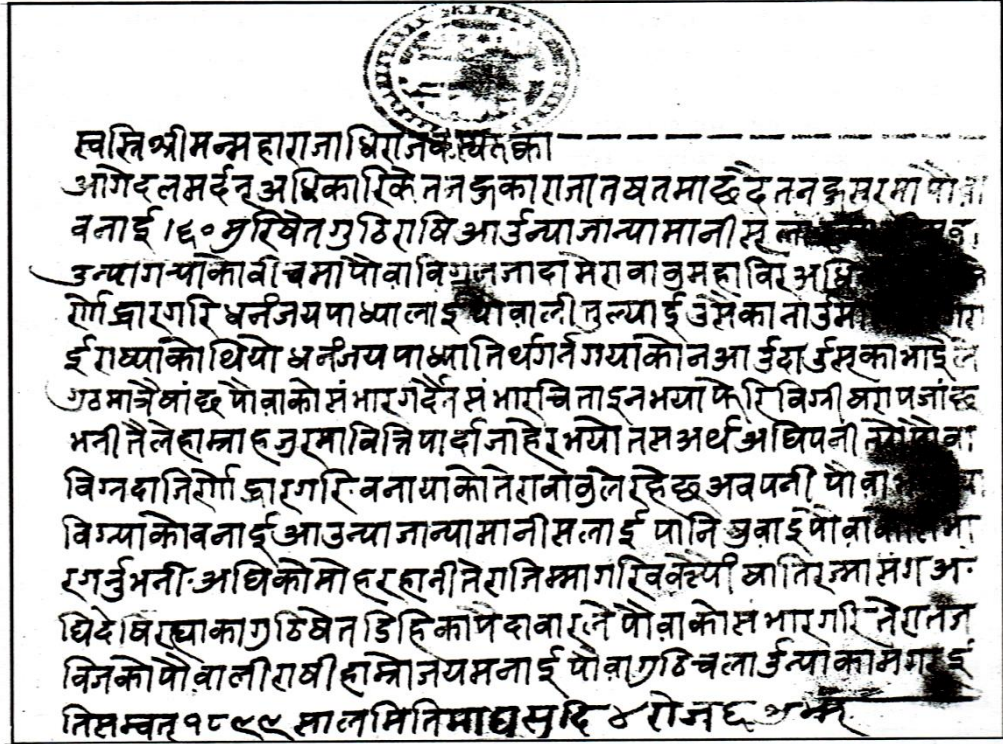 स्वस्ति श्रीमन्महाराजाधिराजकस्य रुक्का
आगे दलमर्दन् अधिकारिके तनङुका राजा तषतमा छदै तनङ्सरमा पौवा
वनाई ।६० मुरि षेत गुठि राषि आउन्या जान्या मानीस्
उन्या गऱ्याको वीचमा पौवा विग्रन जादा मेरा वावु महाविर अधि
र्णोद्धार गरि धनंजय पाध्यालाई पौवाली तुल्याई उसैका नाउमा
ई राष्याको थियो धनंजय पाध्या तिर्थ गर्न गयाको न आउदा उसका भाइले
गुठमात्रै षांछ पौवाको संभार गर्दैन संभार चिताइ न भया फेरि विग्री षराप जांछ
भनी तैले हाम्रा हजुरमा विन्ति पार्दा जाहेर भयो तस अर्थ अघि पनी
विग्रदा जिर्णोद्धार गरि वनायाको तेरा वावुले रहेछ अव पनी पौवा
विग्र्याको वनाई आउन्या जान्या मानीसलाई पानि षुवाई पौवा
र गर्नु भनी अघिको मोहर हानी तेरा जिम्मा गरि वक्स्यौं षातिरजमासंग अ
घि देषि रह्याका गुठि षेत डिहिका पैदावारले पौवाको संभार गरि तेरा
विजको पौवाली राषी हाम्रो जय मनाई पौवा गुठि चलाउन्या काम गर
ति सम्वत् १८९९ साल मिति माघ सुदि ४ रोज ६ शुभम्